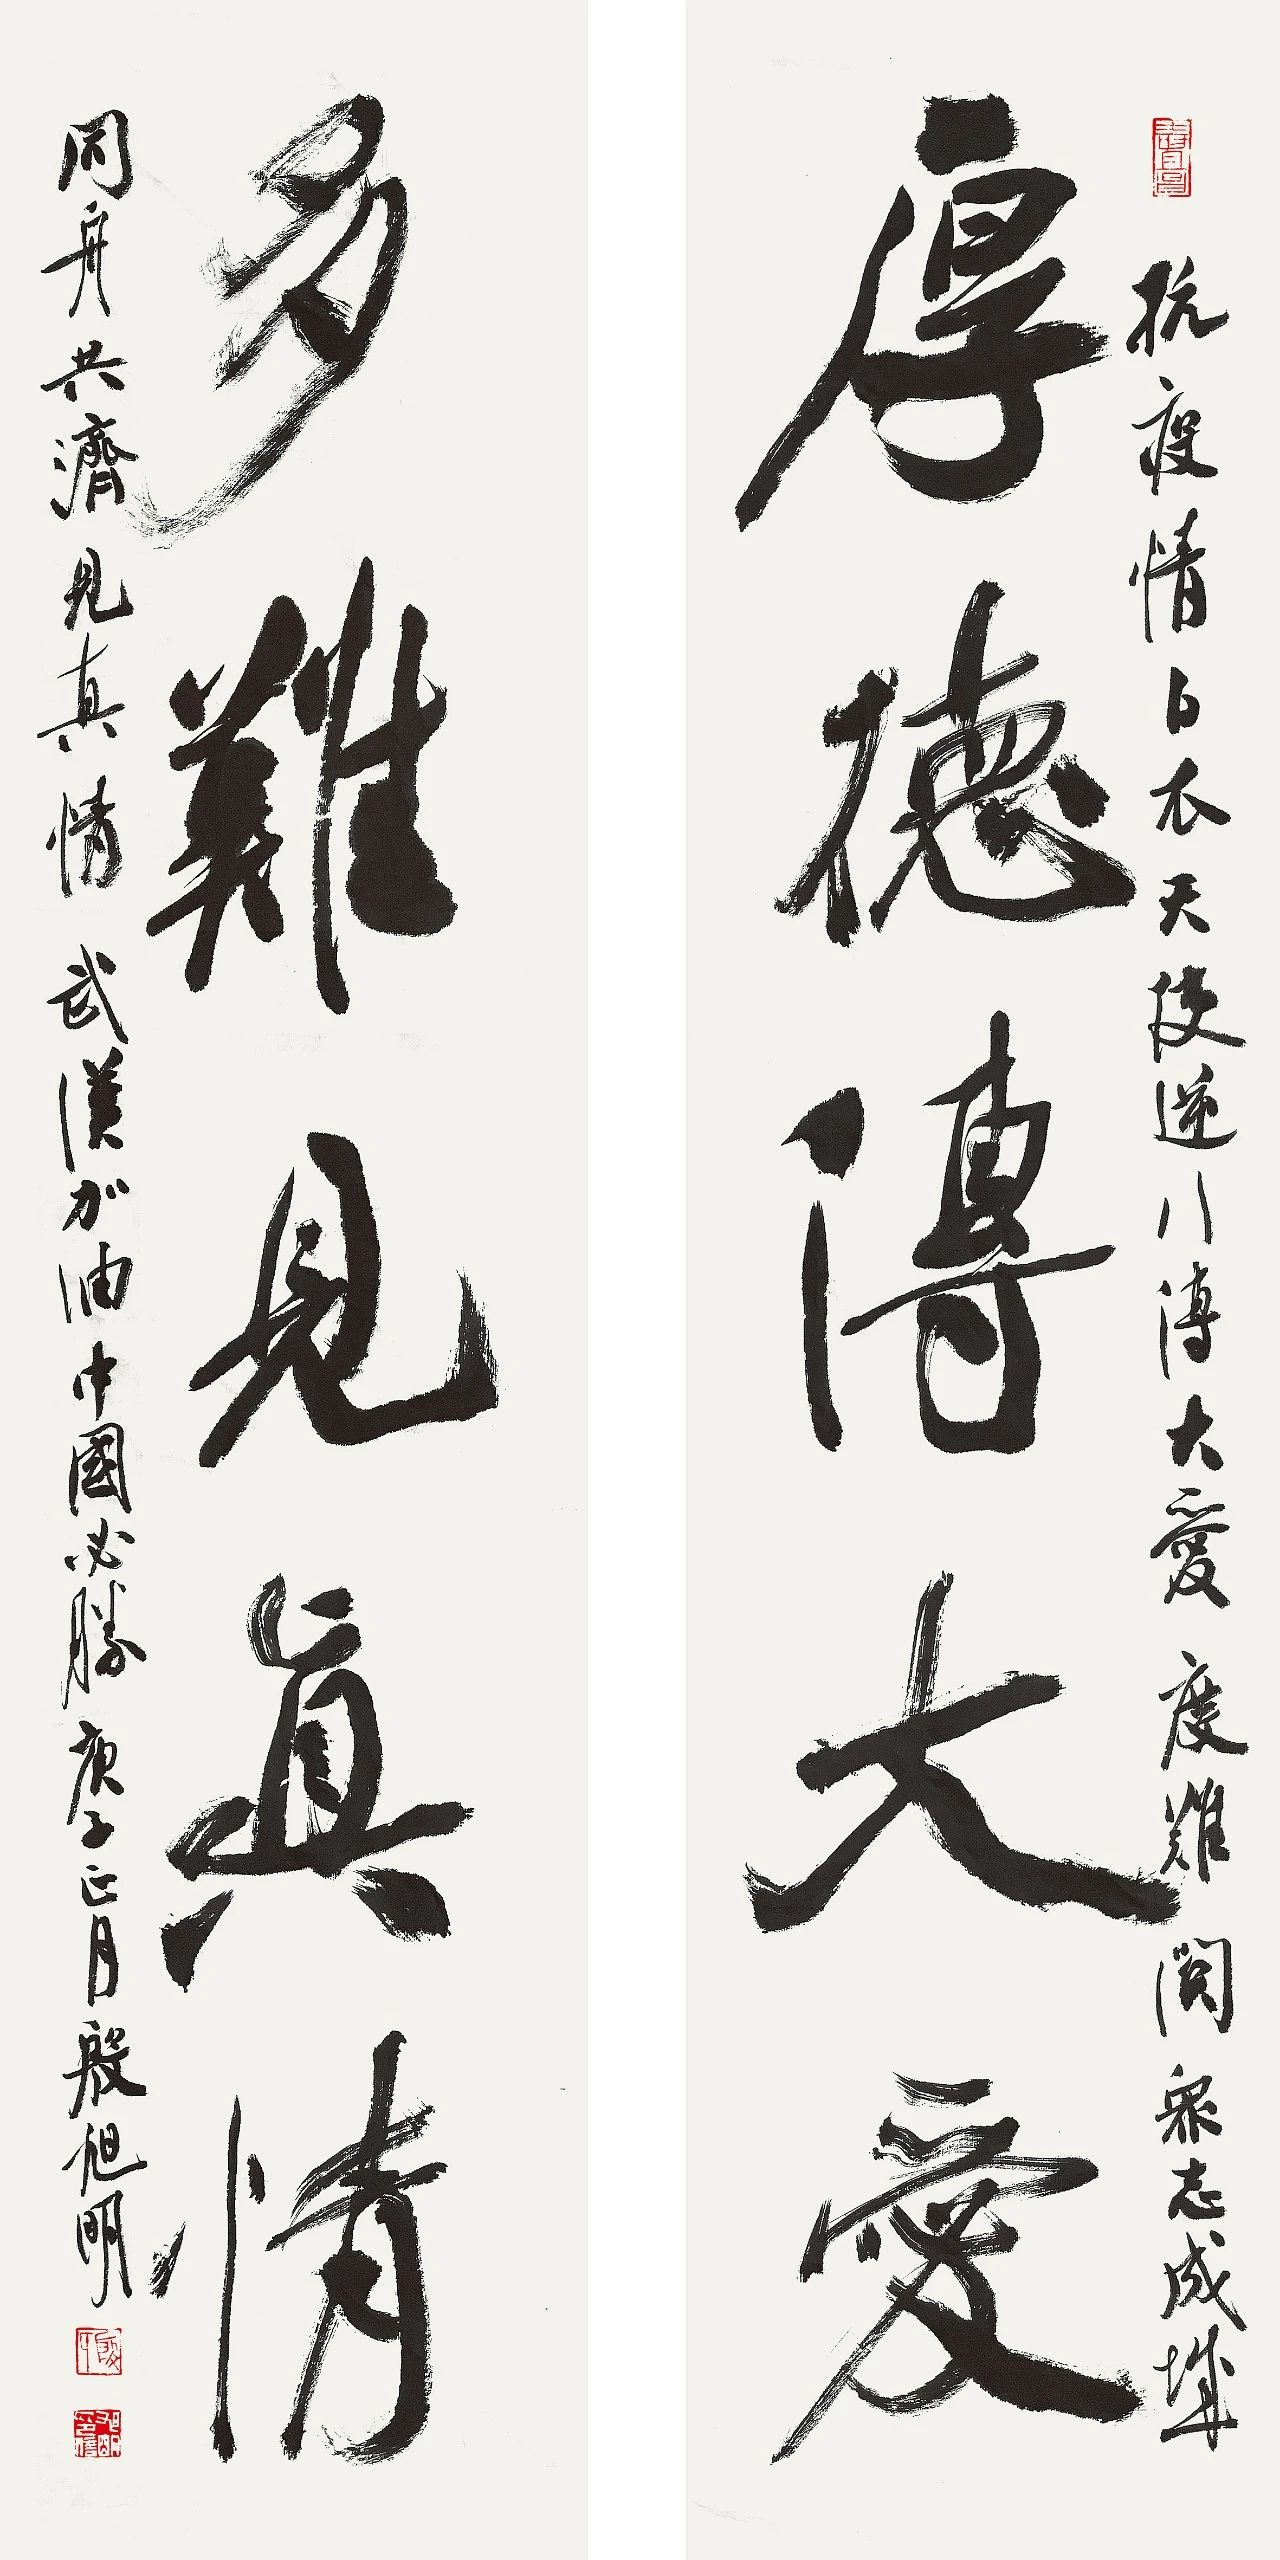 抗疫情白衣天使逆行傳大愛度難關眾志成城
厚德傳大愛
多難見真情
同舟共濟見真情武漢加油中國必勝庚子正月殷旭明